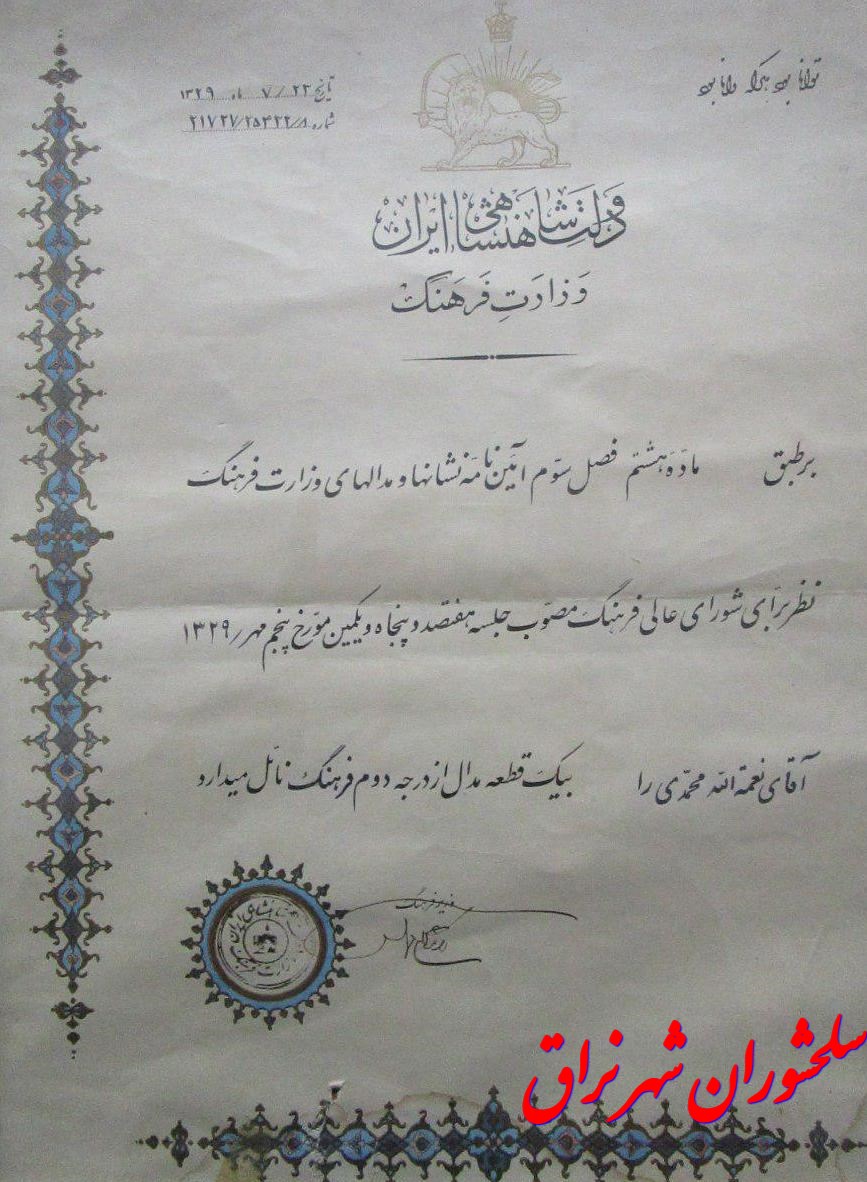 توانا بود هر که دانا بود
تاریخ ۲۳ / ۷ ماه ۱۳۲۹
شماره ۲۱۷۲۷/۲۵۳۲۲/۸
دولت شاهنشاهی ایران
وزارت فرهنگ
بر طبق ماده هشتم فصل سوّم آئین نامه نشانها و مدالهای وزارت فرهنگ
نظر برای شورای عالی فرهنگ مصوّب جلسه هفتصد و پنجاه و یکمین مورّخ پنجم مهر ۱۳۲۹
آقای نعمة الله محمّدی را بیک قطعه مدال از درجه دوم فرهنگ نائل میدارد
وزیر فرهنگ
سلحشوران شهر نراق